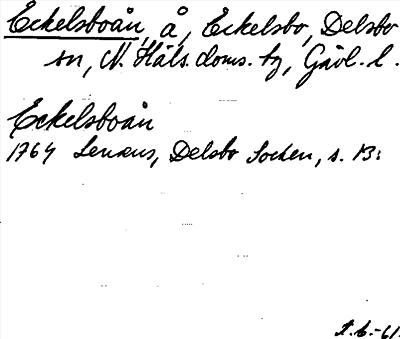 Eckelsboån, å, Eckelsbo, Delsbo
sn, N. Häls. doms. tg, Gävl. l.
Eckelsboån
1764 Lenæus, Delsbo Socken, s. 13: